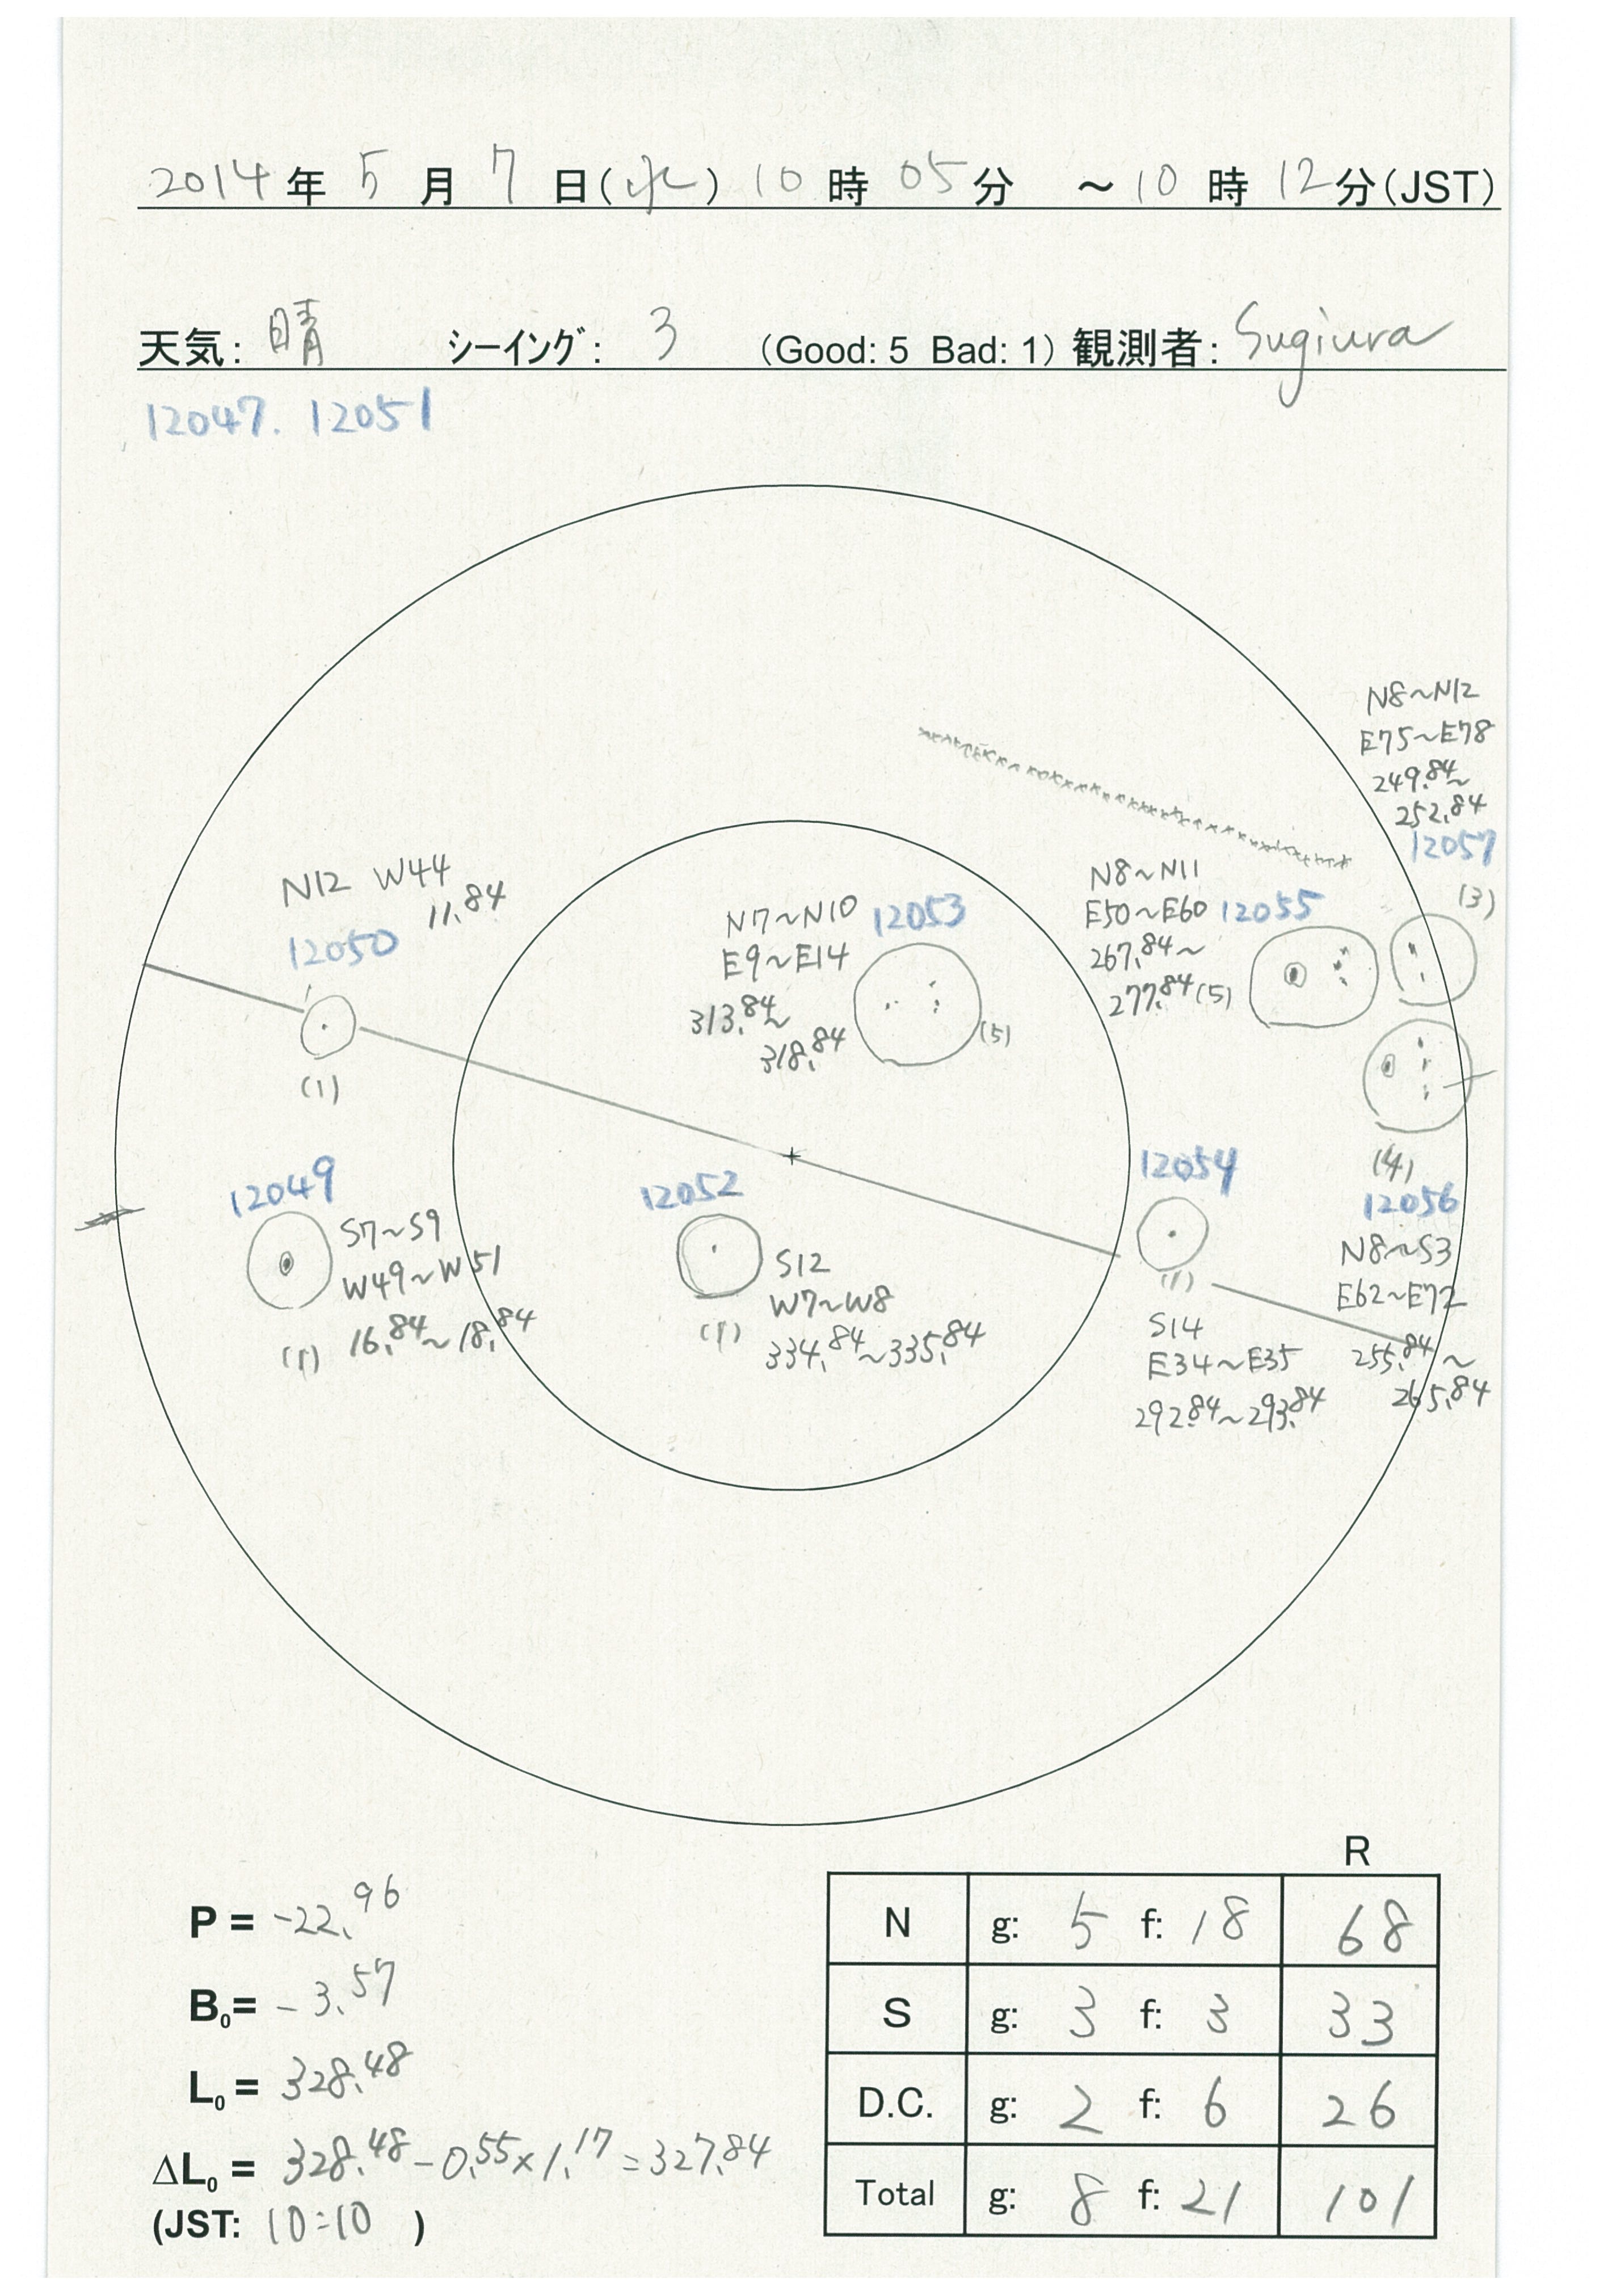 2014年 5月 7日(水) 10時 05分 ~10時 12分(JST)
天気: 晴 シーイング: 3 (Good: 5 Bad: 1) 観測者: Sugiura
12047. 12051
N8~N12
E75~E78
249.84~
252.84
12057
(3)
N12 W44
11.84
12050
(1)
N7~N10 12053
E9~E14
313.84~
318.84
(5)
N8~N11
E50~E60 12055
267.84~
277.84(5)
12049
S7~S9
W49~W51
16.84~18.84
(1)
12052
S12
W7~W8
(1) 334.84~335.84
12054
(1)
S14
E34~E35
292.84~293.84
(4)
12056
N8~S3
E62~E72
255.84~
265.84
P = -22.96
B0= -3.57
L0 = 328.48
ΔL0 = 328.48-0.55×1.17=327.84
(JST: 10:10 )
R
N g: 5 f: 18 68
S g: 3 f: 3 33
D.C. g: 2 f: 6 26
Total g: 8 f: 21 101